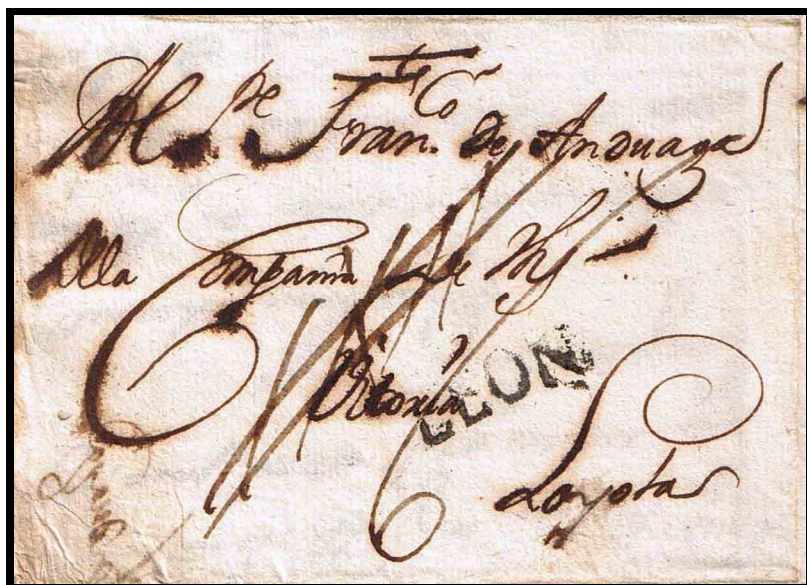 Al Pe. Franco. de Anduaga
de la Compania de Jhs.
Vitoria
LEON
Loyola